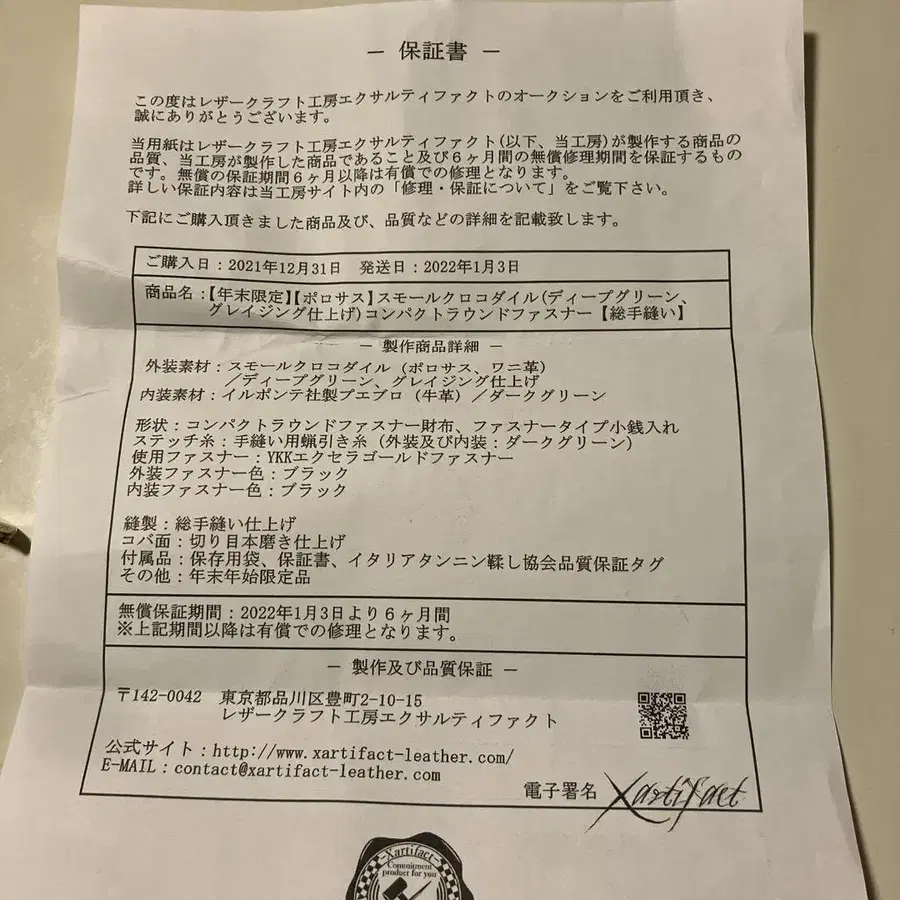 ― 保証書 ―
この度はレザークラフト工房エクサルティファクトのオークションをご利用頂き、
誠にありがとうございます。
当用紙はレザークラフト工房エクサルティファクト(以下、当工房)が製作する商品の
品質、当工房が製作した商品であること及び６ヶ月間の無償修理期間を保証するもの
です。無償の保証期間６ヶ月以降は有償での修理となります。
詳しい保証内容は当工房サイト内の「修理・保証について」をご覧下さい。
下記にご購入頂きました商品及び、品質などの詳細を記載致します。
ご購入日：2021年12月31日　発送日：2022年1月3日
商品名：【年末限定】【ポロサス】スモールクロコダイル(ディープグリーン、
グレイジング仕上げ)コンパクトラウンドファスナー【総手縫い】
― 製作商品詳細 ―
外装素材：スモールクロコダイル（ポロサス、ワニ革）
／ディープグリーン、グレイジング仕上げ
内装素材：イルポンテ社製プエブロ（牛革）／ダークグリーン
形状：コンパクトラウンドファスナー財布、ファスナータイプ小銭入れ
ステッチ糸：手縫い用蝋引き糸（外装及び内装：ダークグリーン）
使用ファスナー：YKKエクセラゴールドファスナー
外装ファスナー色：ブラック
内装ファスナー色：ブラック
縫製：総手縫い仕上げ
コバ面：切り目本磨き仕上げ
付属品：保存用袋、保証書、イタリアタンニン鞣し協会品質保証タグ
その他：年末年始限定品
無償保証期間：2022年1月3日より６ヶ月間
※上記期間以降は有償での修理となります。
― 製作及び品質保証 ―
〒142-0042　東京都品川区豊町2-10-15
レザークラフト工房エクサルティファクト
公式サイト：http://www.xartifact-leather.com/
E-MAIL：contact@xartifact-leather.com
電子署名 Xartifact
Xartifact
Commitment
product for you